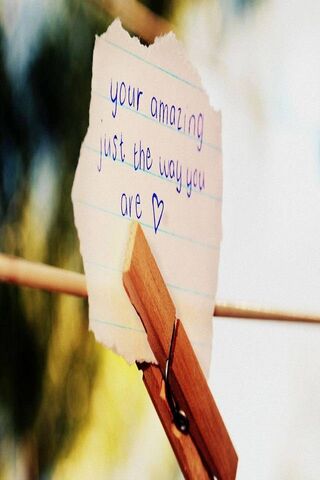 your amazing
just the way you
are ♡